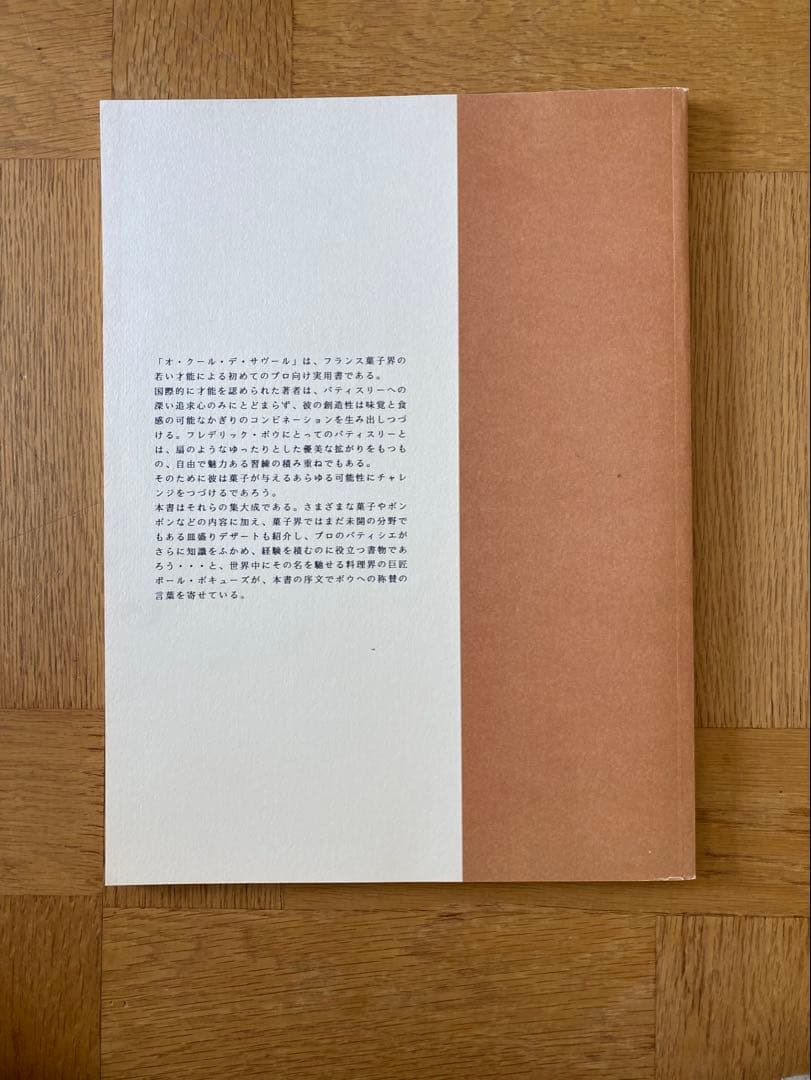 「オ・クール・デ・サヴール」は、フランス菓子界の
若い才能による初めてのプロ向け実用書である。
国際的に才能を認められた著者は、パティスリーへの
深い追求心のみにとどまらず、彼の創造性は味覚と食
感の可能なかぎりのコンビネーションを生み出しつづ
ける。フレデリック・ボウにとってのパティスリーと
は、扇のようなゆったりとした優美な拡がりをもつも
の、自由で魅力ある習練の積み重ねでもある。
そのために彼は菓子が与えるあらゆる可能性にチャレ
ンジをつづけるであろう。
本書はそれらの集大成である。さまざまな菓子やボン
ボンなどの内容に加え、菓子界ではまだ未開の分野で
もある皿盛りデザートも紹介し、プロのパティシエが
さらに知識をふかめ、経験を積むのに役立つ書物であ
ろう・・・と、世界中にその名を馳せる料理界の巨匠
ポール・ボキューズが、本書の序文でボウへの称賛の
言葉を寄せている。